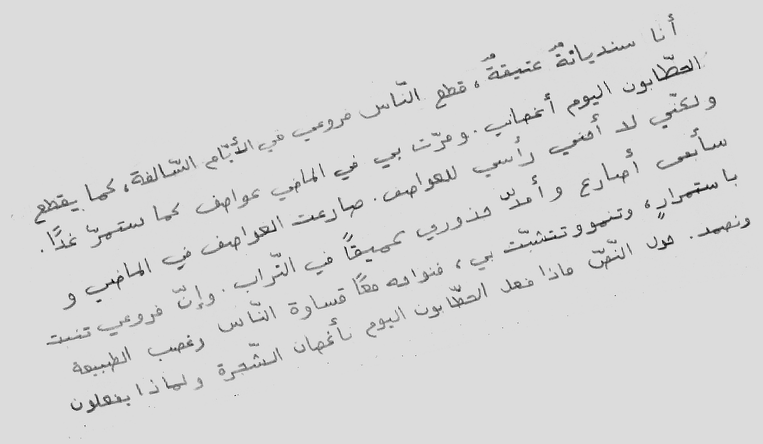 أنا سنديانةٌ عتيقةٌ، قطع النّاس فروعي في الأيّام السّالفة، كما يقطع
الحطّابون اليوم أغصاني. ومرّت بي في الماضي عواصف كما ستمرّ غدًا.
ولكنّي لا أحني رأسي للعواصف. صارعت العواصف في الماضي و
سأبقى أصارع وأمدّ جذوري عميقًا في التّراب. وإنّ فروعي تنبت
باستمرارٍ، وتنمو وتتشبّت بي، فنواجه معًا قساوة النّاس وغضب الطبيعة
ونصمد. حول النّصّ ماذا فعل الحطّابون اليوم بأغصان الشّجرة ولماذا يفعلون